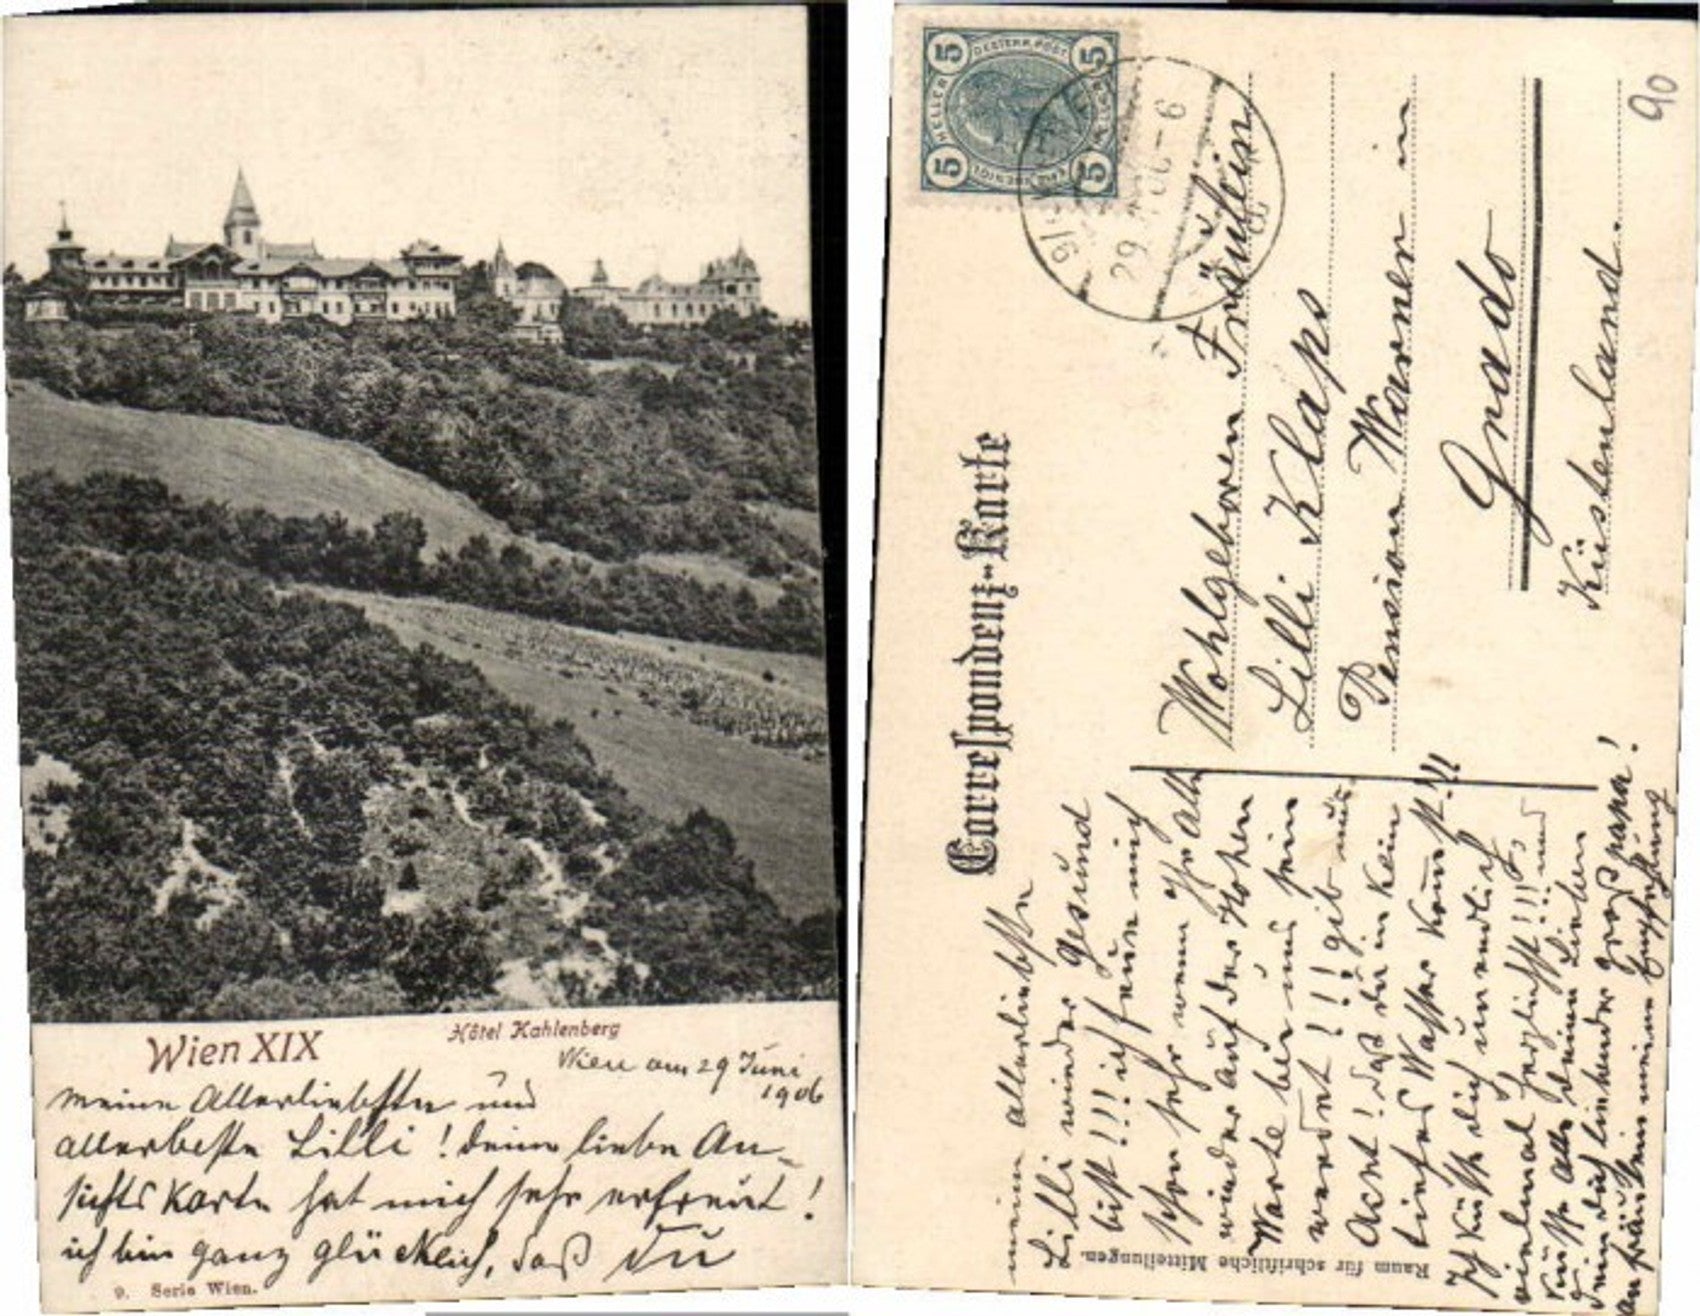 Wien XIX
Hôtel Kahlenberg
Wien am 29 Juni
1906
meine Allerliebste und
allerbeste Lilli! deine liebe An-
sichts Karte hat mich sehr erfreut!
ich bin ganz glücklich, daß du
9. Serie Wien.
5 5
OESTERR. POST
HELLER
5 5
19/1
29 06-6
Correspondenz-Karte
Wohlgeboren Fräulein
Lilli Klaps
Pension Warner in
Grado
Küstenland.
90
meine allerliebste
Lilli wieder gesund
bist!!! ich freue mich
schon sehr wenn Ihr alle
wieder auf der Hohen
Warte bei uns sein
werdet!!! gib nur
Acht! daß du in kein
tiefes Wasser komst!!!
Ich küße dich unendlich
vielmal herzlichst!!! und
küße alle deine Lieben
dein dich liebender Großpapa!
an Fräulein meine Empfehlung
Raum für schriftliche Mitteilungen.